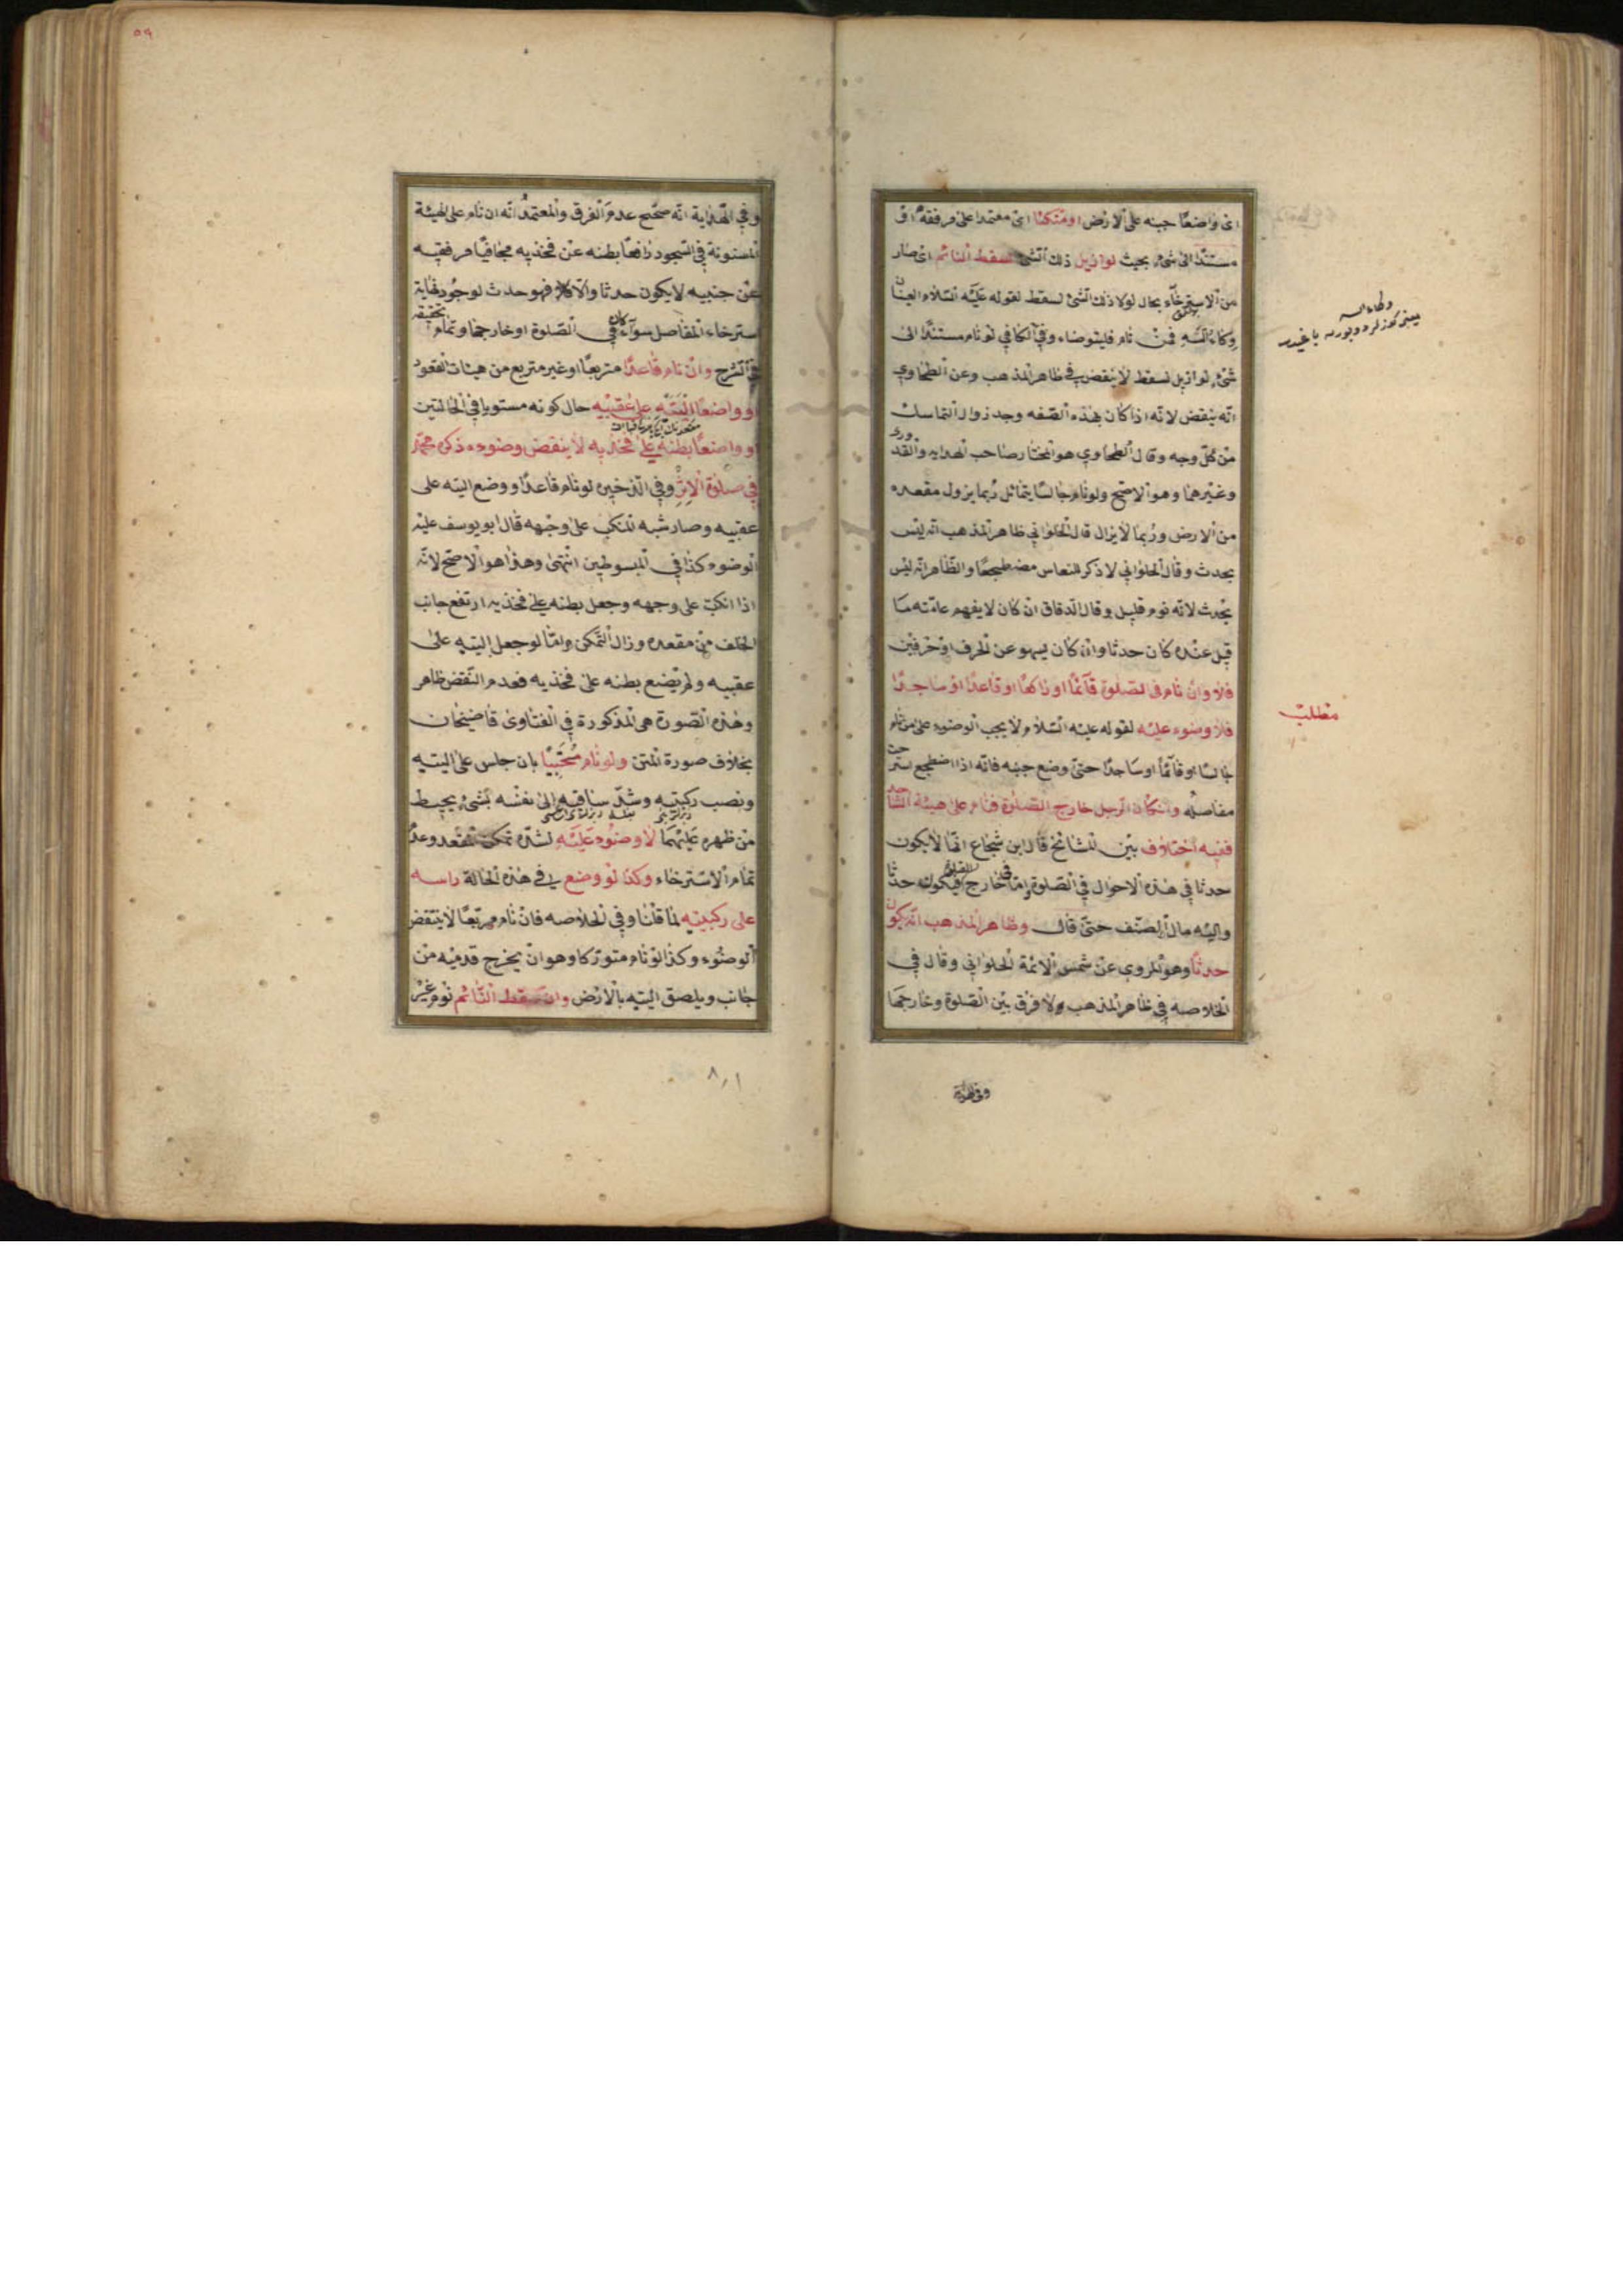 اى واضعا جنبه على الارض او متكئا اى معتمدا على مرفقه او
مستندا الى شىء بحيث لو ازيل ذلك الشىء لسقط النائم اى صار
من الاسترخاء بحال لولا ذلك الشئ لسقط لقوله عليه السلام العينان
وكاء السه فمن نام فليتوضاء وفي الكافي لو نام مستندا الى
شىء لو ازيل لسقط لا ينقض في ظاهر المذهب وعن الطحاوي
انه ينقض لانه اذا كان بهذه الصفه وجد زوال التماسك
من كل وجه وقال الطحاوي هو المختار صاحب الهدايه والقدورى
وغيرهما وهو الاصح ولو نام جالسا يتمائل ربما يزول مقعده
من الارض وربما لا يزال قال الحلواني ظاهر المذهب انه ليس
بحدث وقال الحلواني لا ذكر للنعاس مضطجعا والظاهر انه ليس
بحدث لانه نوم قليل وقال الدقاق ان كان لا يفهم عامته ما
قيل عنده كان حدثا وان كان يسهو عن الحرف او حرفين
فلا وان نام في الصلوة قائما او راكعا او قاعدا او ساجدا
فلا وضوء عليه لقوله عليه السلام لا يجب الوضوء على من نام
جالسا او قائما او ساجدا حتى وضع جنبه فانه اذا اضطجع استرخت
مفاصله وان كان الرجل خارج الصلوة فنام على هيئة الساجد
ففيه اختلاف بين المشائخ قال ابن شجاع انما لا يكون
حدثا في هذه الاحوال في الصلوة اما في خارج الصلوة فيكون حدثا
واليه مال المصنف حتى قال وظاهر المذهب انه يكون
حدثا وهو المروي عن شمس الائمة الحلواني وقال في
الخلاصه في ظاهر المذهب ولا فرق بين الصلوة وخارجها
مطلب
وفي الهداية
٥٩
وفي الهداية انه صحح عدم الفرق والمعتمد انه ان نام على الهيئة
المسنونة في السجود رافعا بطنه عن فخذيه مجافيا مرفقيه
عن جنبيه لا يكون حدثا والا فهو حدث لوجود نهاية
استرخاء المفاصل سواء كان في الصلوة او خارجها وتمام تحقيقه
في الشرح وان نام قاعدا متربعا او غير متربع من هيئات القعود
او واضعا اليتيه على عقبيه حال كونه مستويا في الحالتين
او واضعا بطنه على فخذيه لا ينقض وضوءه ذكره محمد
في صلوة الاثر وفي الذخيره لو نام قاعدا ووضع اليته على
عقبيه وصار شبه المنكب على وجهه قال ابو يوسف عليه
الوضوء كذا في المبسوطين انتهى وهذا هو الاصح لانه
اذا انكب على وجهه وجعل بطنه على فخذيه ارتفع جانب
الخلف من مقعده وزال التمكن واما لو جعل اليتيه على
عقبيه ولم يضع بطنه على فخذيه فعدم النقض ظاهر
وهذه الصورة هي المذكورة في الفتاوى قاضيخان
بخلاف صورة المتن ولو نام محتبيا بان جلس على اليتيه
ونصب ركبتيه وشد ساقيه الى نفسه بشىء يحيط
من ظهره عليهما لا وضوء عليه لشدة تمكن المقعد وعدم
تمام الاسترخاء وكذا لو وضع في هذه الحالة راسه
على ركبتيه لما قلنا وفي الخلاصه فان نام مربعا لا ينتقض
الوضوء وكذا لو نام متوركا وهو ان يخرج قدميه من
جانب ويلصق اليتيه بالارض وان سقط النائم نوم غير